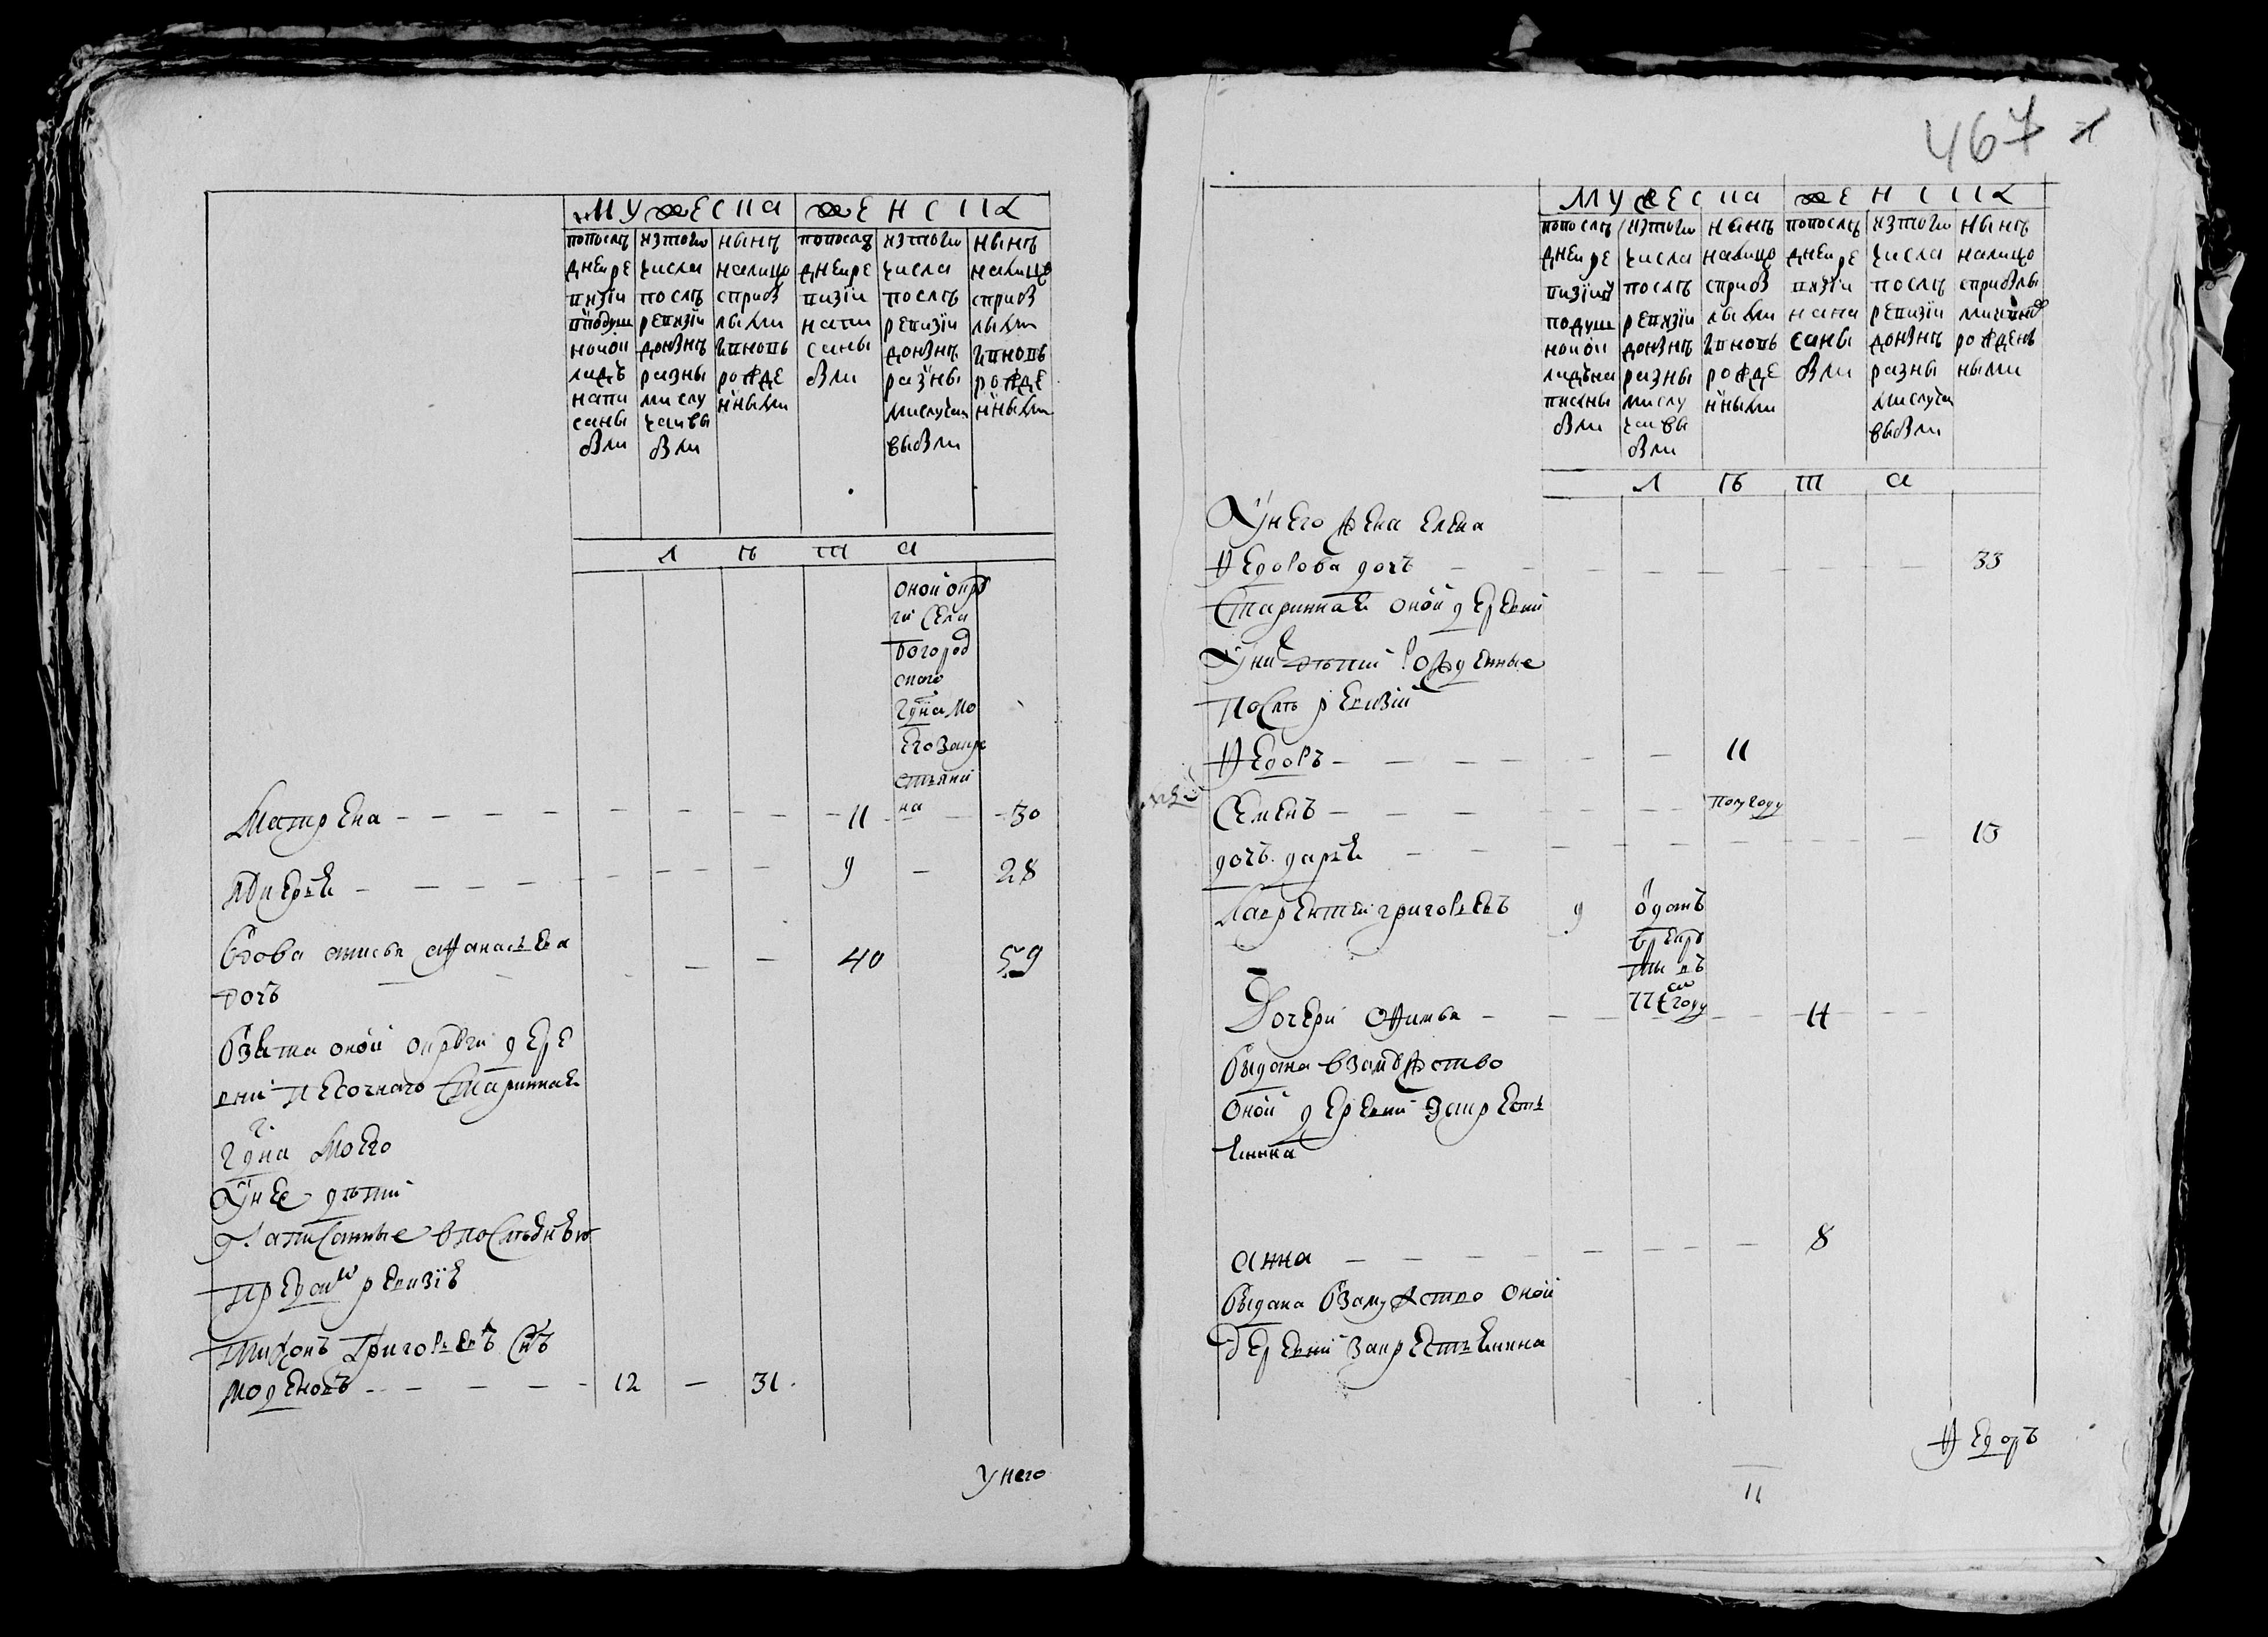 467
МУЖЕСКА ЖЕНСКА
попослѣ днеи ре визiи вподуш нои ок ладъ напи саны были
изтого числа послѣ ревизiи донынѣ разны ми слу чаи вы были
нынѣ налицо сприбылыми ивновь рожде нными
попослѣ днеи ре визiи напи саны были
изтого числа послѣ ревизiи донынѣ разны ми случаи выбыли
нынѣ налицо сприбылыми ивновь рожде нными
лѣта
оной окру
ги села
богород
ского
гдна мо
его закре
стьяни
на
Матрена 11 30
9 28
вдова анисья афанасьева
дочь 40 59
взята оной округи дере
вни песочнаго старинная
гдна моего
у нее дѣти
написанные впослѣднею
пред сию ревизiе
тихонъ григорьевъ снъ
12 31
у него
МУЖЕСКА ЖЕНСКА
попослѣ днеи ре визiи подуш нои ок ладъ на писаны были
изтого числа послѣ ревизiи донынѣ разны ми слу чаи вы были
нынѣ налицо сприбылыми ивновь рожде нными
попослѣ днеи ре визiи напи саны были
изтого числа послѣ ревизiи донынѣ разны ми случаи выбыли
нынѣ налицо сприбылыми ивновь рожденными
лѣта
у него жена елена
федорова дочь 33
старинная оной деревни
у них дѣти рожденные
послѣ ревизiи
федоръ 11
семенъ полугоду
дочь дарья 13
лаврентей григорьевъ 9 отданъ
в рекру
ты въ
году
дочери офимья 11
выдана взамужство
оной деревни закресть
янина
анна 8
выдана взамужство оной
деревни закрестьянина
федоръ